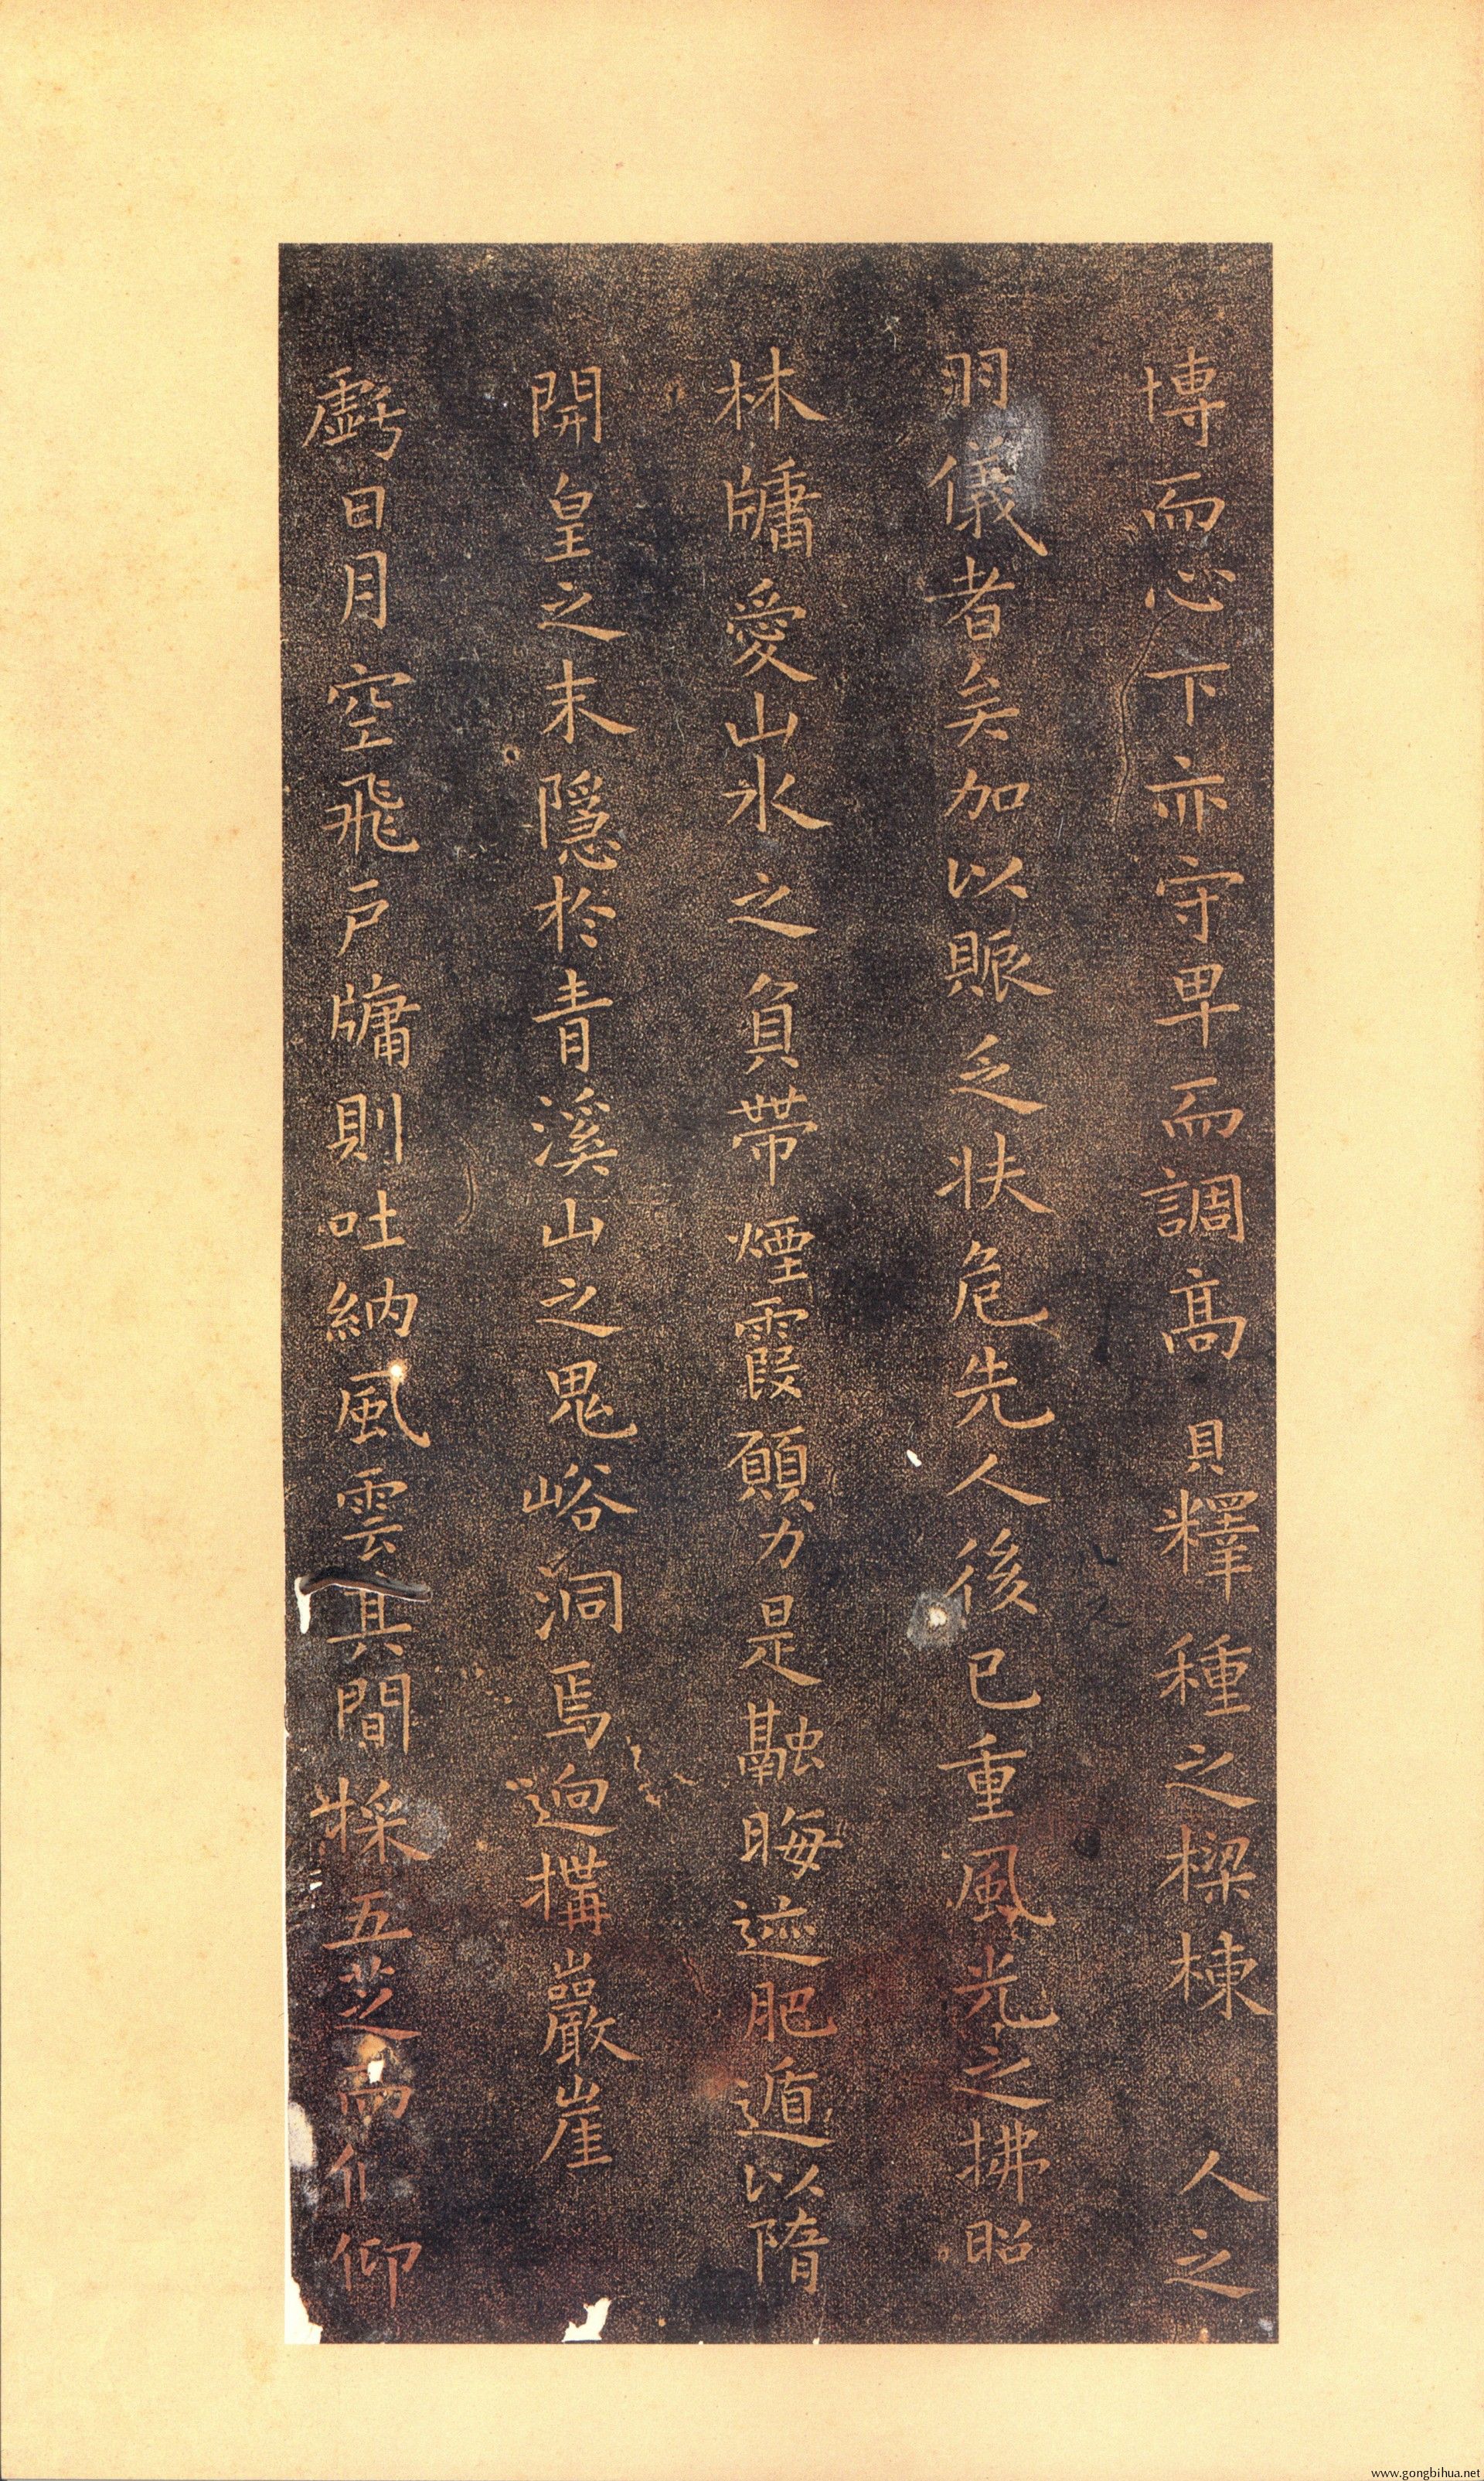 博而心下亦守卑而調高具釋種之樑棟人之
羽儀者矣加以賑乏扶危先人後已重風光之拂照
林牗愛山水之負帶煙霞願力是融晦迹肥遁以隋
開皇之末隱於青溪山之鬼峪洞焉迥構巖崖
虧日月空飛戶牗則吐納風雲其間採五芝而偃仰
www.gongbihua.net